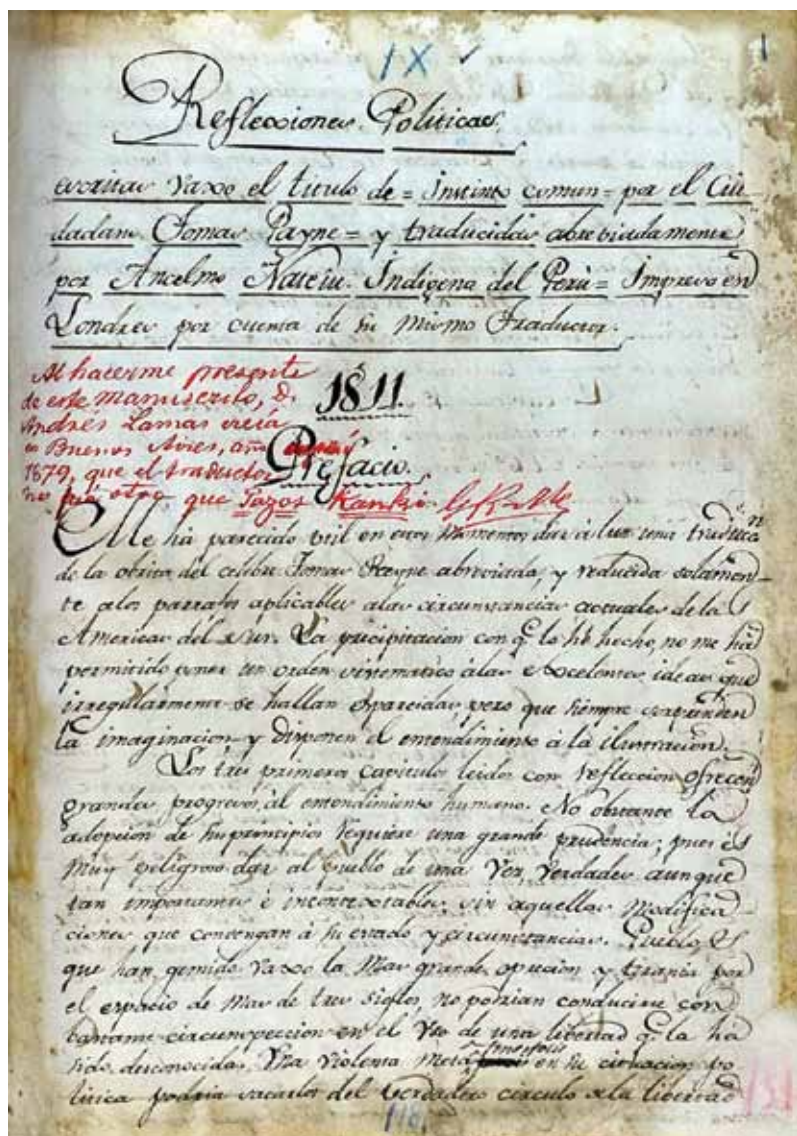 IX ✓
1
Reflecciones Politicas.
escritas vaxo el titulo de = Instinto comun = por el Ciu-
dadano Tomas Payne = y traducidas abreviadamente
por Anselmo Nateiu. Indigena del Perú = Impreso en
Londres por cuenta de su mismo Traductor.
Al hacerme presente
de este manuscrito, D.
Andrés Lamas creía
en Buenos Aires, año
1879, que el traductor
no fué otro que Pazos Kanki
1811.
Prefacio.
Me há parecido util en estos momentos dar á luz una traducⁿ
de la obrita del celebre Tomas Payne abreviada, y reducida solamen-
te alos parrafos aplicables alas circunstancias actuales de la
America del Sur. La precipitacion con q.ᵉ lo hé hecho, no me há
permitido poner un orden sistematico álas excelentes ideas que
irregularmente se hallan esparcidas, pero que siempre sorprenden
la imaginacion y disponen el entendimiento á la ilustracion.
Los tres primeros capitulos leidos con reflеccion ofrecen
grandes progresos, al entendimiento humano. No obstante la
adopcion de sus principios requiere una grande prudencia; pues és
muy peligroso dar al Pueblo de una vez, verdades aunque
tan importantes é incontextables sin aquellas modifica-
ciones que convengan á su estado y circunstancias. Pueblos
que han gemido vaxo la mas grande opresion y tirania por
el espacio de mas de tres siglos, no podrian conducirse con
bastante circunspeccion en el uso de una libertad q.ᵉ la há
sido desconocida. Una violenta metamorfosis en su situacion po-
litica podria sacarlos del verdadero circulo de la libertad
118
151